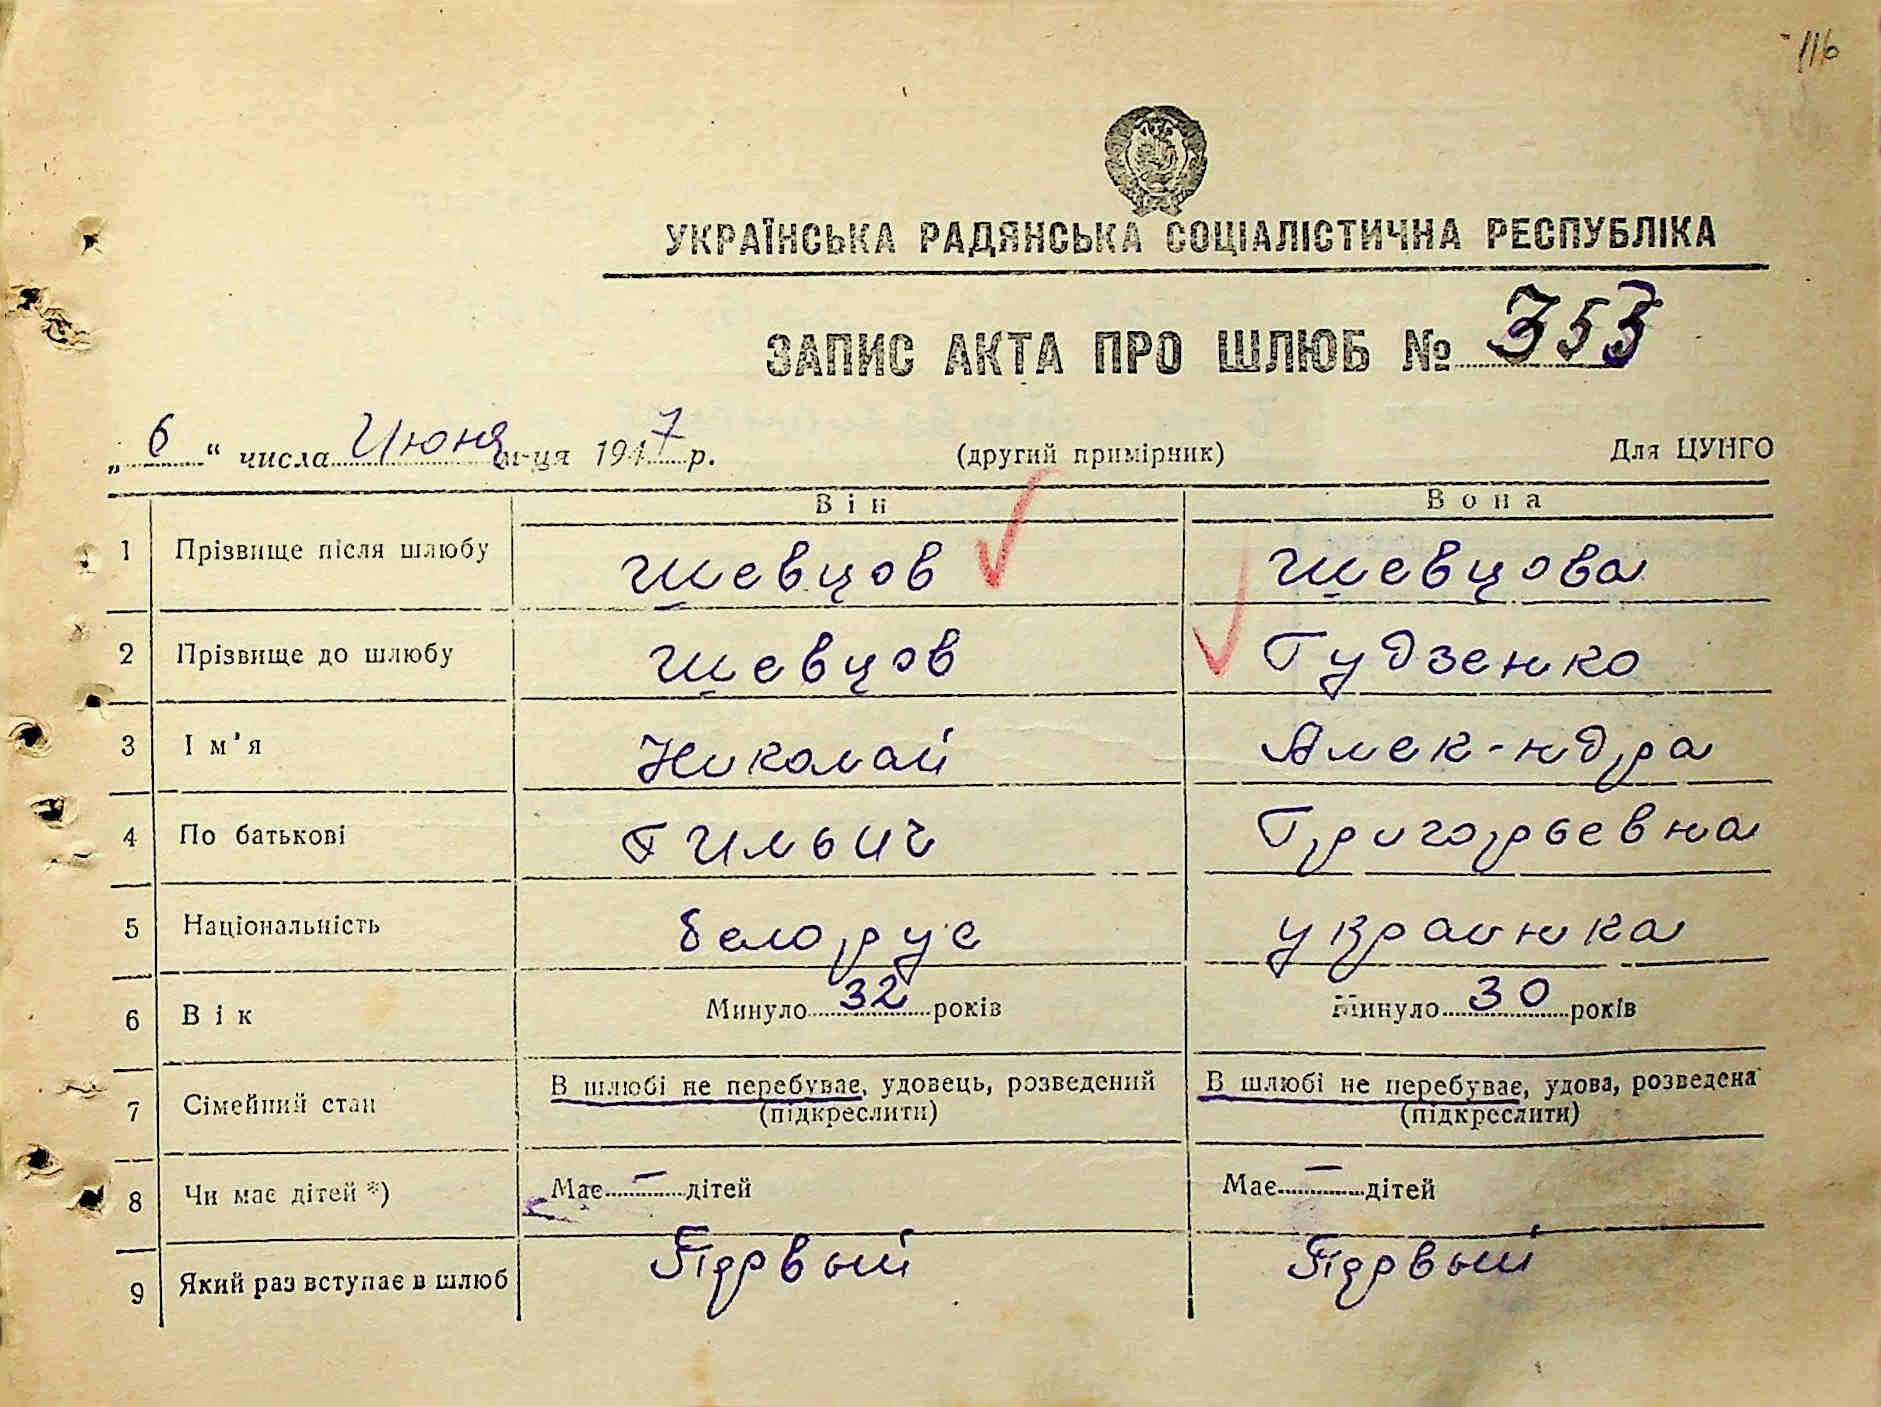 116
УКРАЇНСЬКА РАДЯНСЬКА СОЦІАЛІСТИЧНА РЕСПУБЛІКА
ЗАПИС АКТА ПРО ШЛЮБ № 353
„ 6 “ числа Июня м-ця 1947 р. (другий примірник) Для ЦУНГО
Він Вона
1 Прізвище після шлюбу Шевцов Шевцова
2 Прізвище до шлюбу Шевцов Гудзенко
3 Ім'я Николай Алек-ндра
4 По батькові Ильич Григорьевна
5 Національність белорус украинка
6 Вік Минуло 32 років Минуло 30 років
7 Сімейний стан В шлюбі не перебуває, удовець, розведений В шлюбі не перебуває, удова, розведена
(підкреслити) (підкреслити)
8 Чи має дітей *) Має — дітей Має — дітей
9 Який раз вступає в шлюб Первый Первый